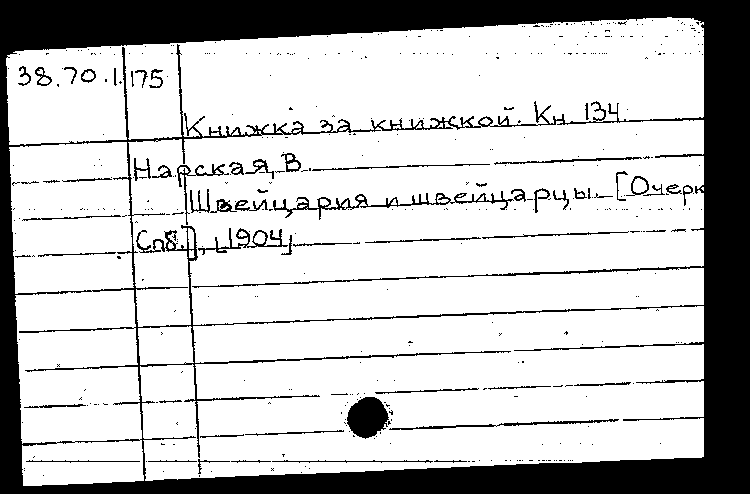 38.70.1.175
Книжка за книжкой. Кн. 134.
Нарская, В.
Швейцария и швейцарцы. [Очерк
Спб.], [1904]